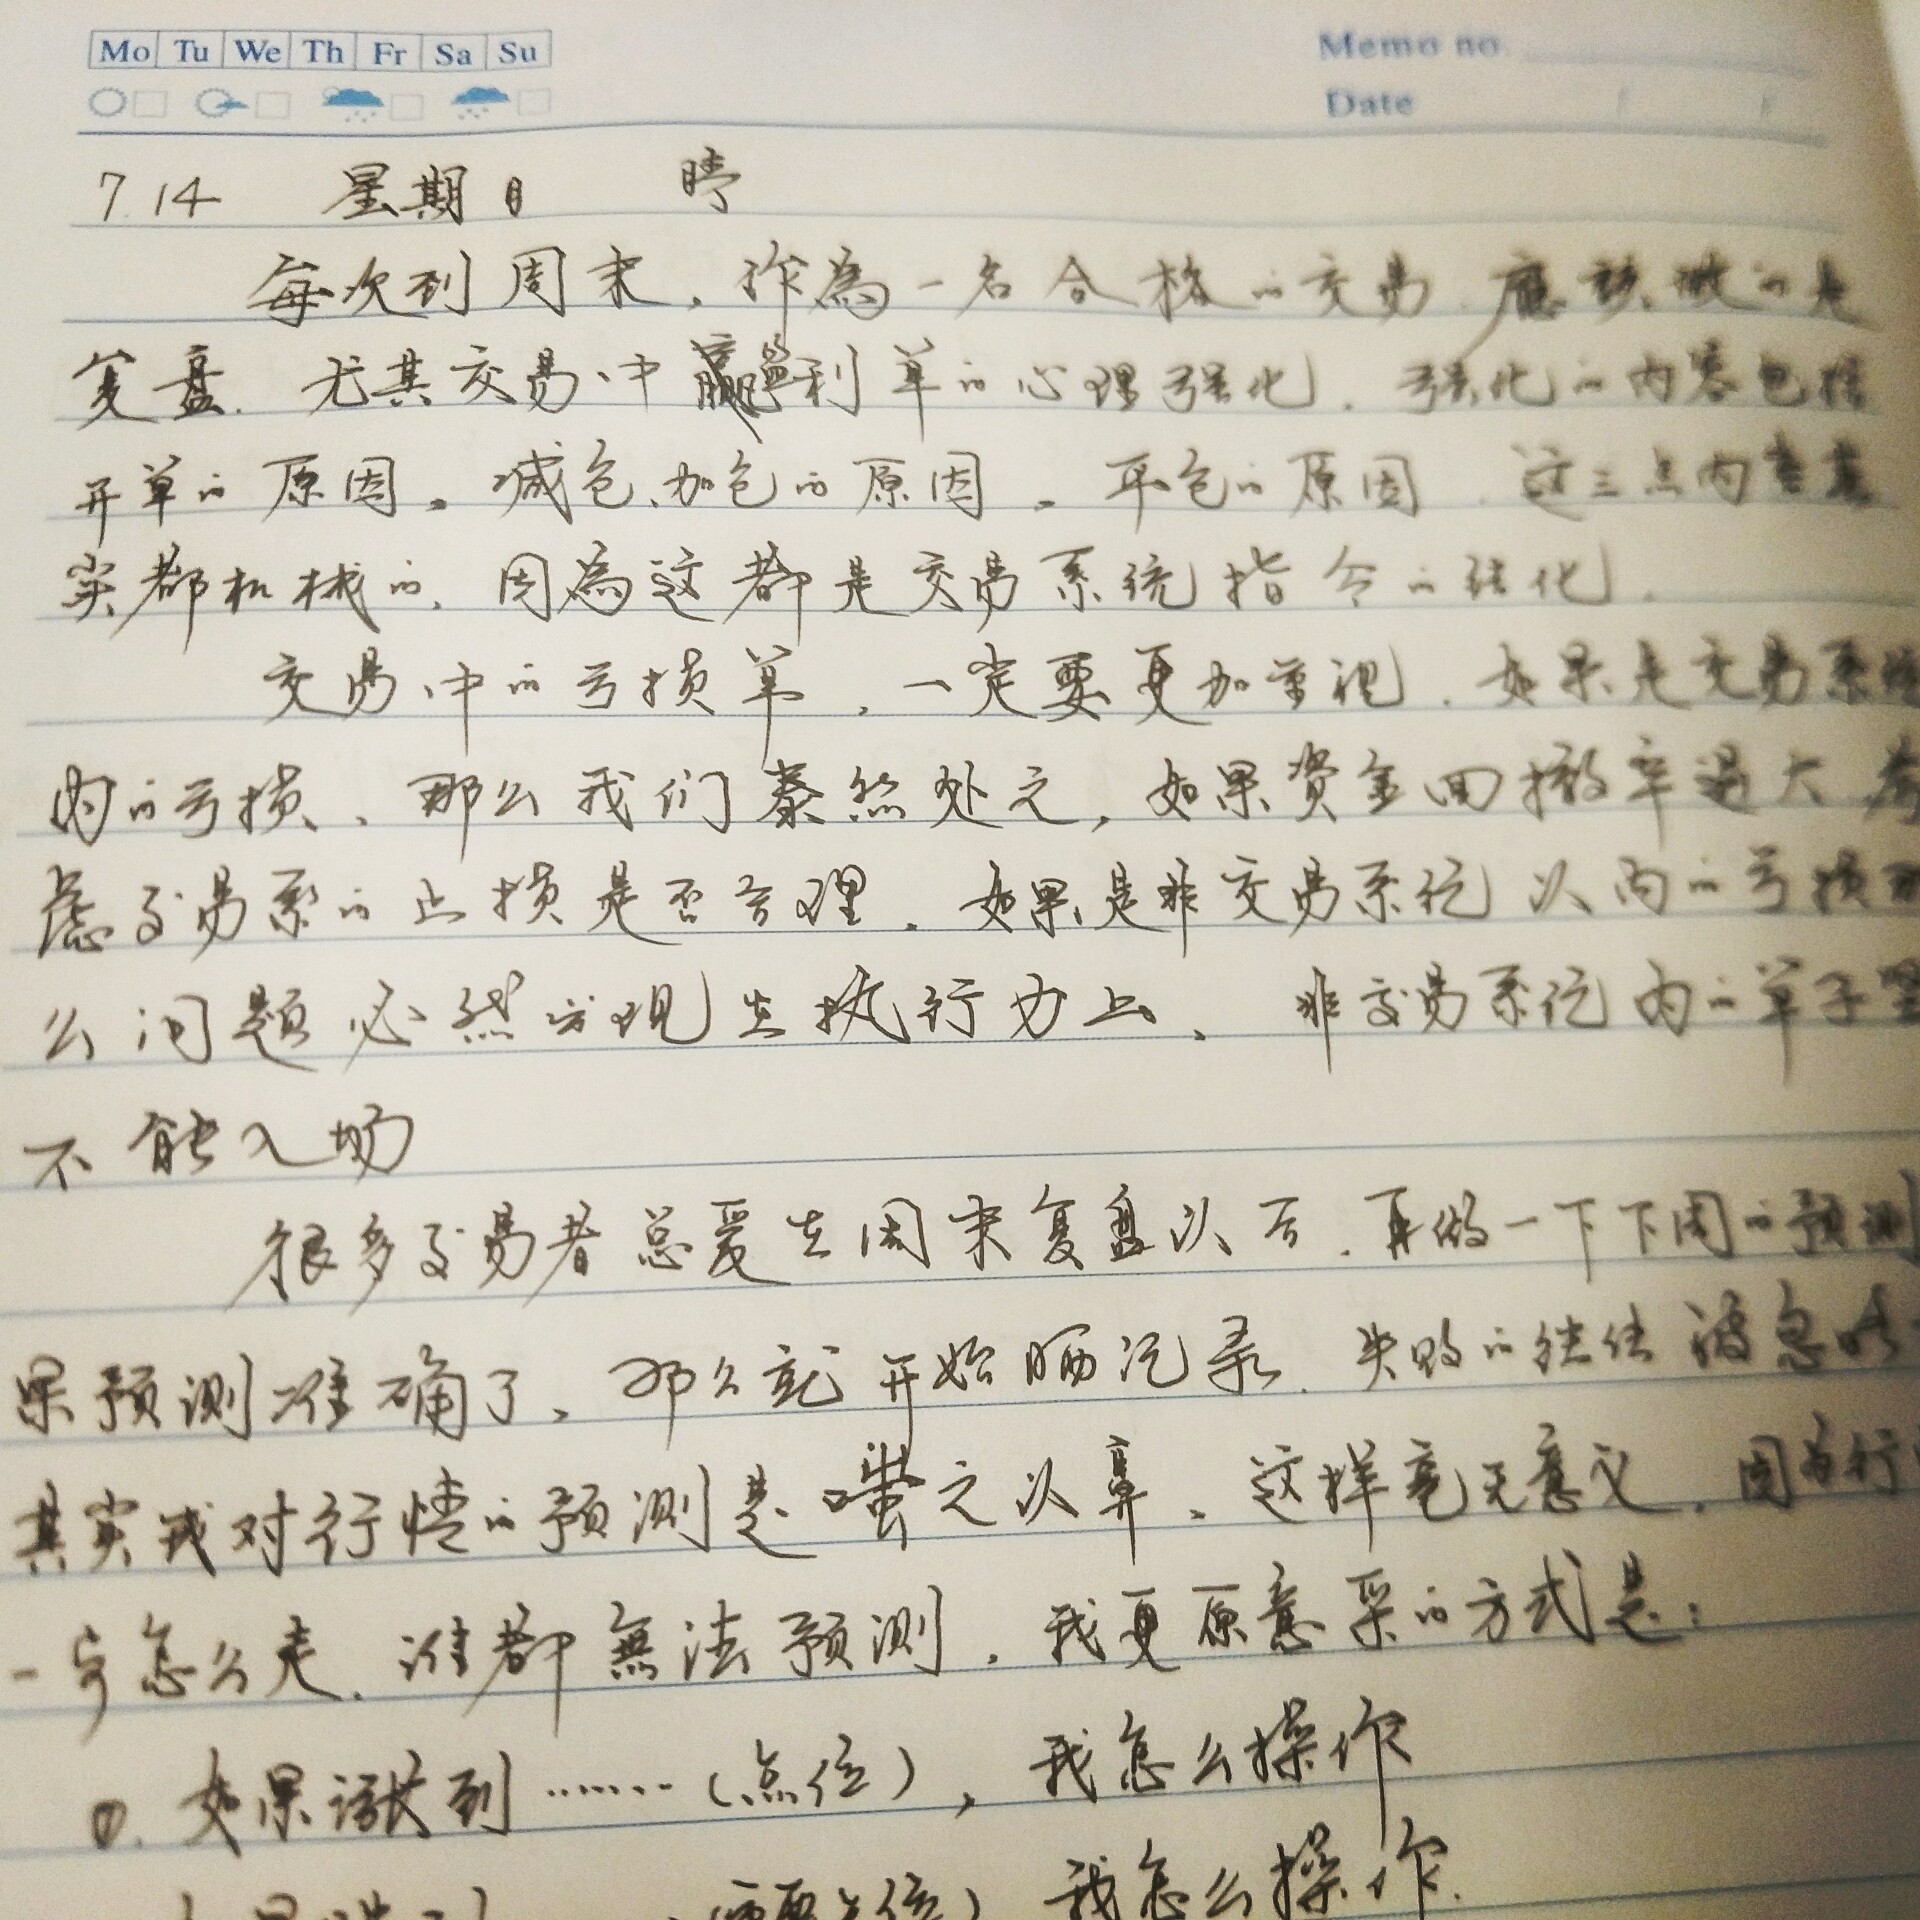 Mo Tu We Th Fr Sa Su
Memo no.
Date
7.14 星期日 晴
每次到周末，作為一名合格的交易 應該做的是
复盘. 尤其交易中 利单的心理强化. 强化的内容包括
开单的原因。减仓、加仓的原因。平仓的原因. 这三点内容其
实都机械的. 因為这都是交易系统指令的强化.
交易中的亏损单，一定要更加重视. 如果是交易系统
内的亏损、那么我们泰然处之, 如果资金回撤率过大 考
虑交易系的止损是否合理. 如果是非交易系统以内的亏损那
么问题必然出现在执行力上、非交易系统内的单子坚
不能入场
很多交易者总爱在周末复盘以后. 再做一下下周的预测
果预测准确了、那么就开始晒记录. 失败的往往被忽略
其实我对行情的预测是嗤之以鼻、这样毫无意义. 因为行
一字怎么走. 谁都無法预测. 我更原意采的方式是:
①. 如果 到……(点位), 我怎么操作
点位) 我怎么操作.